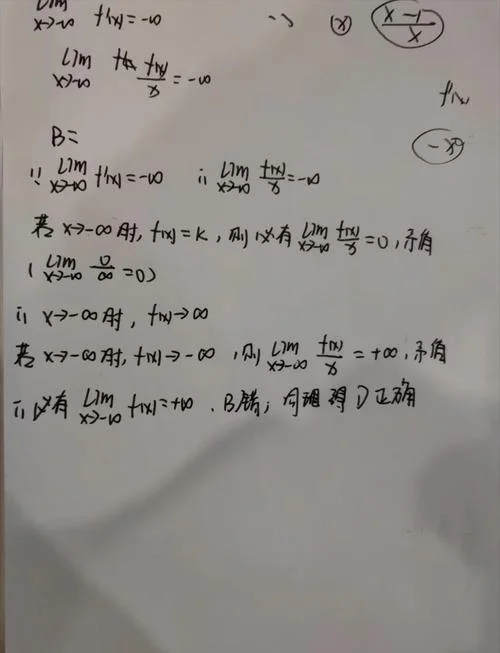 lim x→-∞ f'(x)=-∞ ∵ (x) x-1/x
lim x→-∞ f(x)/x=-∞
f(x)
B=
-x²
∵ lim x→-∞ f'(x)=-∞ ∴ lim x→-∞ f(x)/x=-∞
若 x→-∞时, f(x)=k, 则必有 lim x→-∞ f(x)/x=0, 矛盾
( lim x→-∞ 0/∞=0)
∴ x→-∞时, f(x)→∞
若 x→-∞时, f(x)→-∞, 则 lim x→-∞ f(x)/x=+∞, 矛盾
∴ 必有 lim x→-∞ f(x)=+∞. B错; 同理得D正确